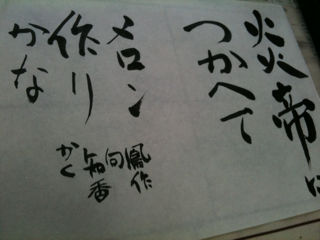 炎帝に
つかへて
メロン
作り
かな
鳳作
句
かく